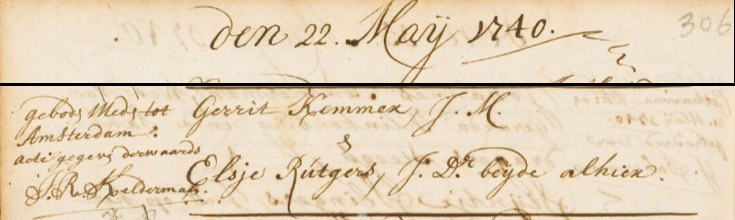 den 22. Maÿ 1740.
306
gebods Mede tot
Amsterdam:
acte gegeven derwaards
J. R. Kelderman.
Gerrit Kemmer, J. M.
&
Elsje Rutgers, J. Dr. beÿde alhier.